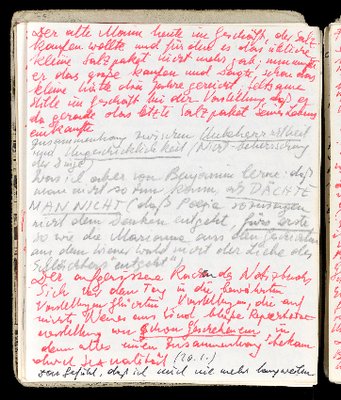 Der alte Mann heute im Geschäft, der Salz
kaufen wollte und für den es das übliche
kleine Salzpaket nicht mehr gab; nun mußte
er das große kaufen und sagte, schon das
kleine hätte ihm Jahre gereicht; seltsame
Stille im Geschäft bei der Vorstellung, daß er
da gerade das letzte Salzpaket seines Lebens
einkaufte
Zusammenhang zwischen Unbeherrschtheit
und Ungeschicklichkeit (Nicht-Beherrschung
der Dinge)
Was ich aber von Benjamin lerne: daß
man nicht so tun kann, als DÄCHTE
MAN NICHT (daß Poesie sozusagen
nicht dem Denken entgeht, fürs erste
so wie die Marianne aus
aus dem Wiener Wald nicht der Liebe des
entgeht)
Der angerissene Rand des Notizbuchs
Sich vor dem Tag in die bewährten
Vorstellungen, die auf
nichts Neues aus sind, bloße
in
dem alles einen Zusammenhang bekam
durch Sexualität (20.1.)
Das Gefühl, daß ich mich nie mehr langweilen